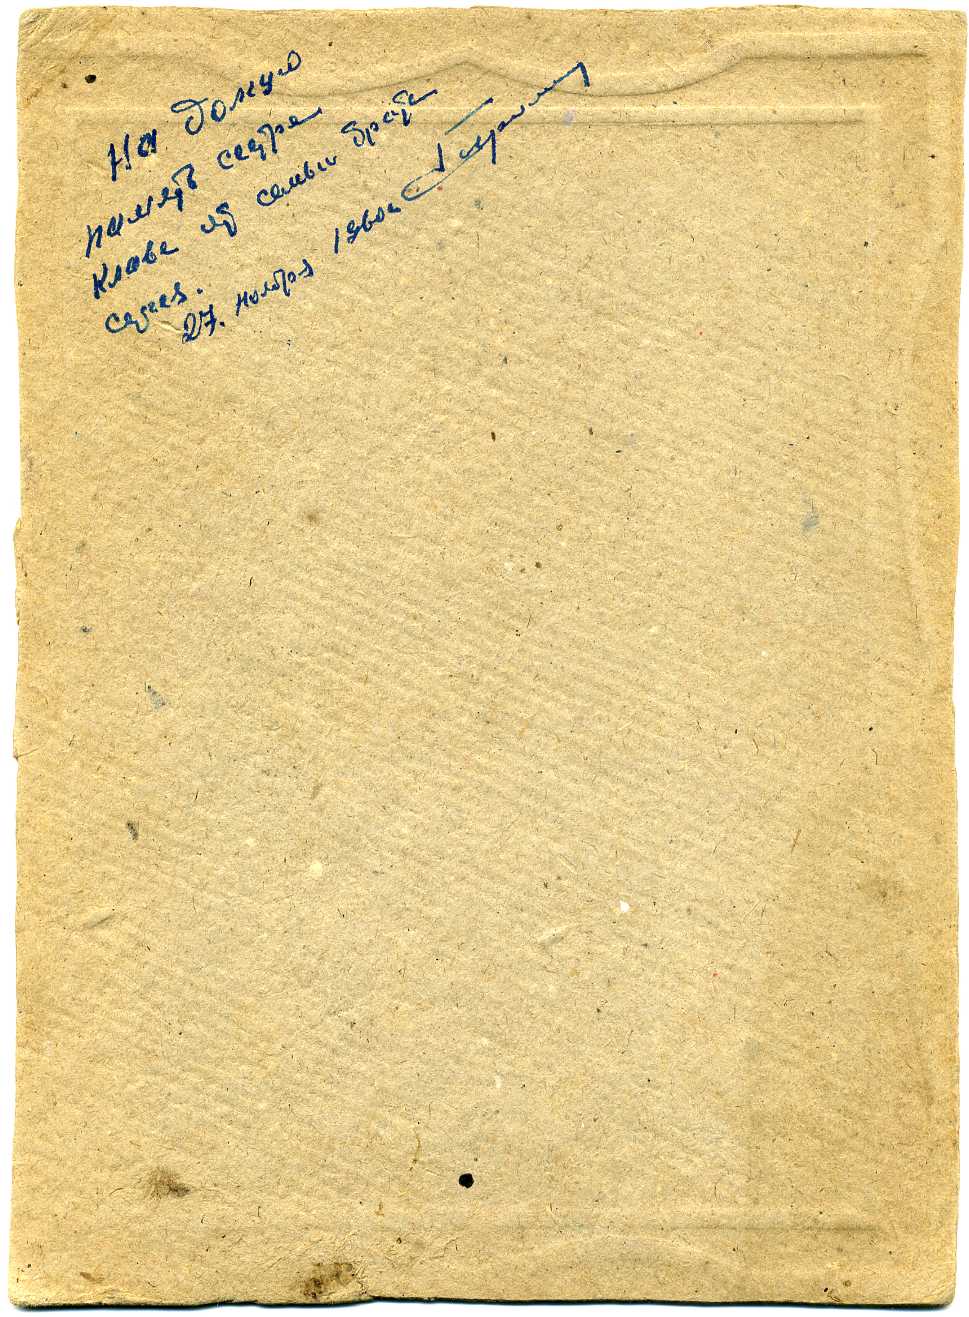 На долгую
память сестре
Клаве от семьи брата
27. ноября 1960г.